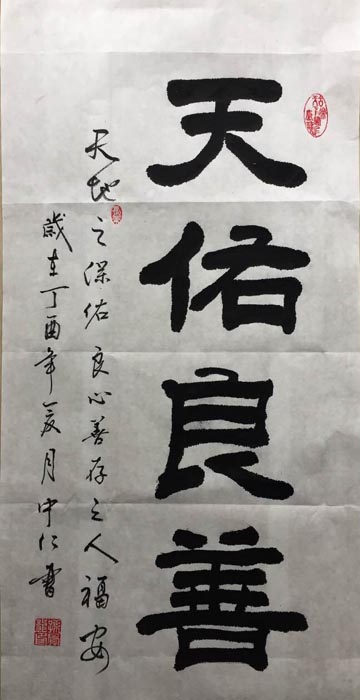 天佑良善
天地之保佑良心善存之人福安
歲在丁酉年亥月中仁書